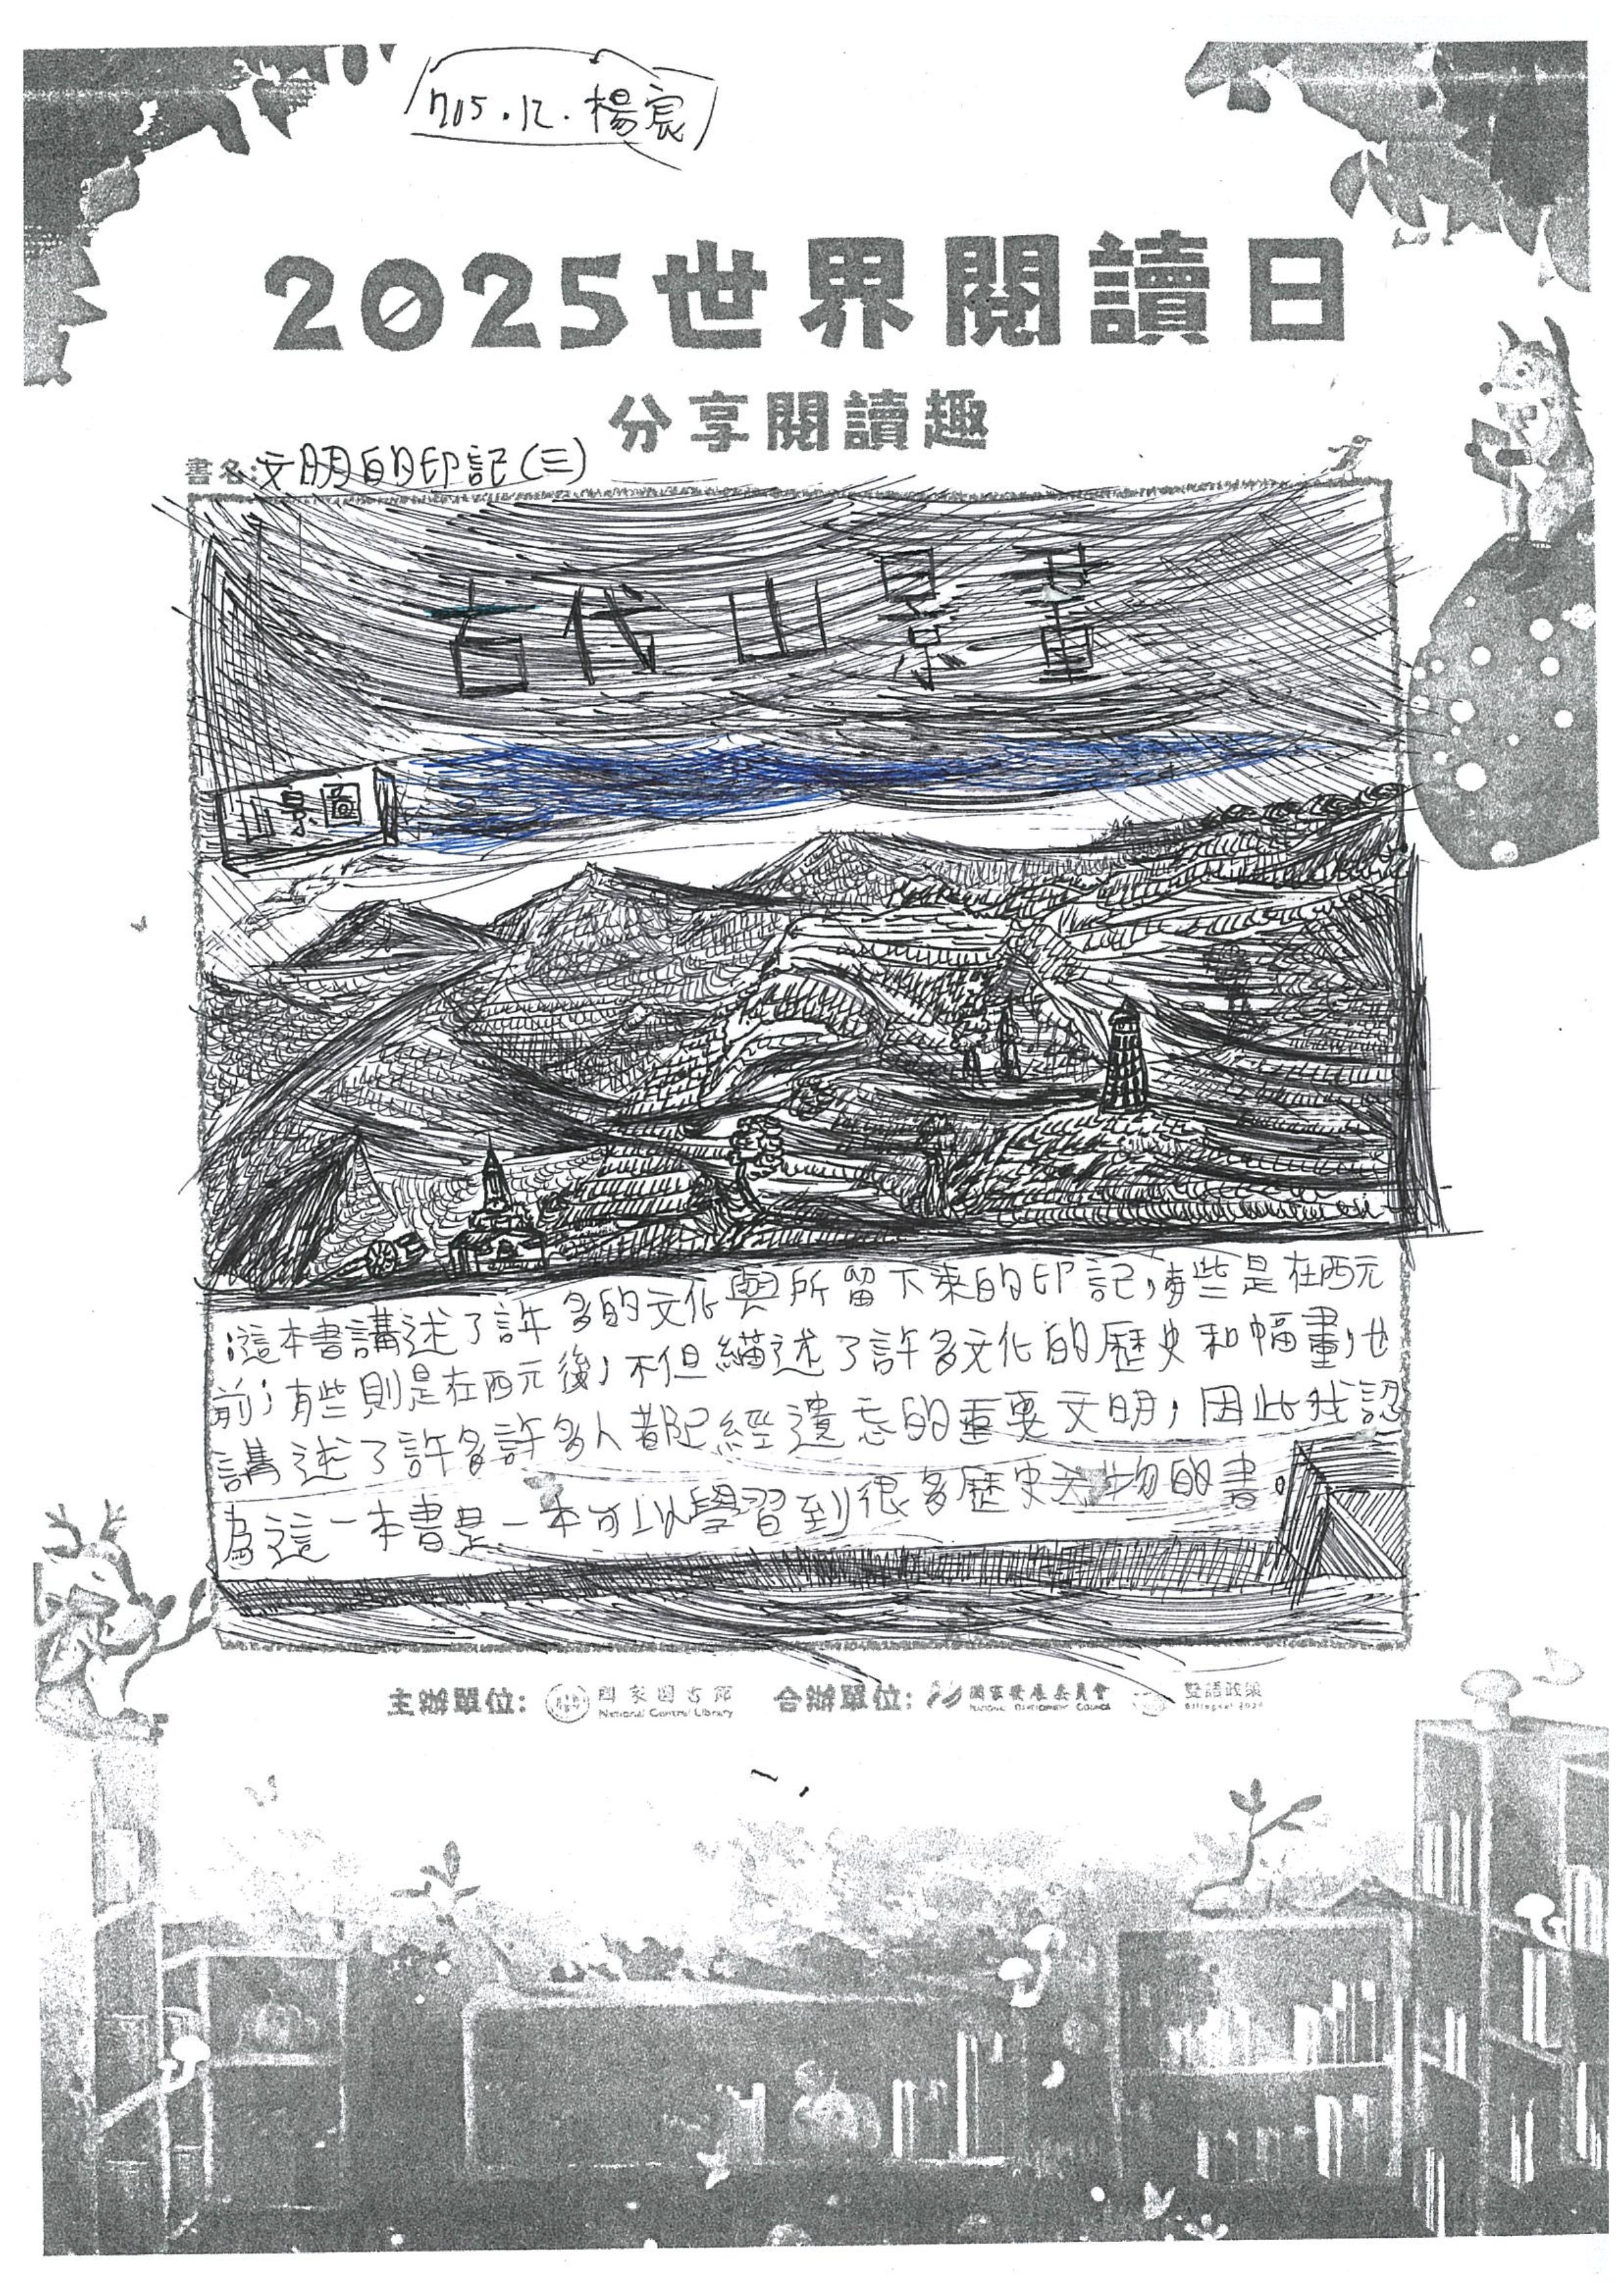 705.12.楊宸
2025世界閱讀日
分享閱讀趣
書名:文明的印記(三)
古代山景畫
山景圖
這本書講述了許多的文化與所留下來的印記,有些是在西元
前,有些則是在西元後,不但描述了許多文化的歷史和幅畫,也
講述了許多許多人都已經遺忘的重要文明,因此我認
為這一本書是一本可以學習到很多歷史文物的書。
主辦單位: 國家圖書館 合辦單位: 國家發展委員會 雙語政策
National Central Library National Development Council Bilingual 2030